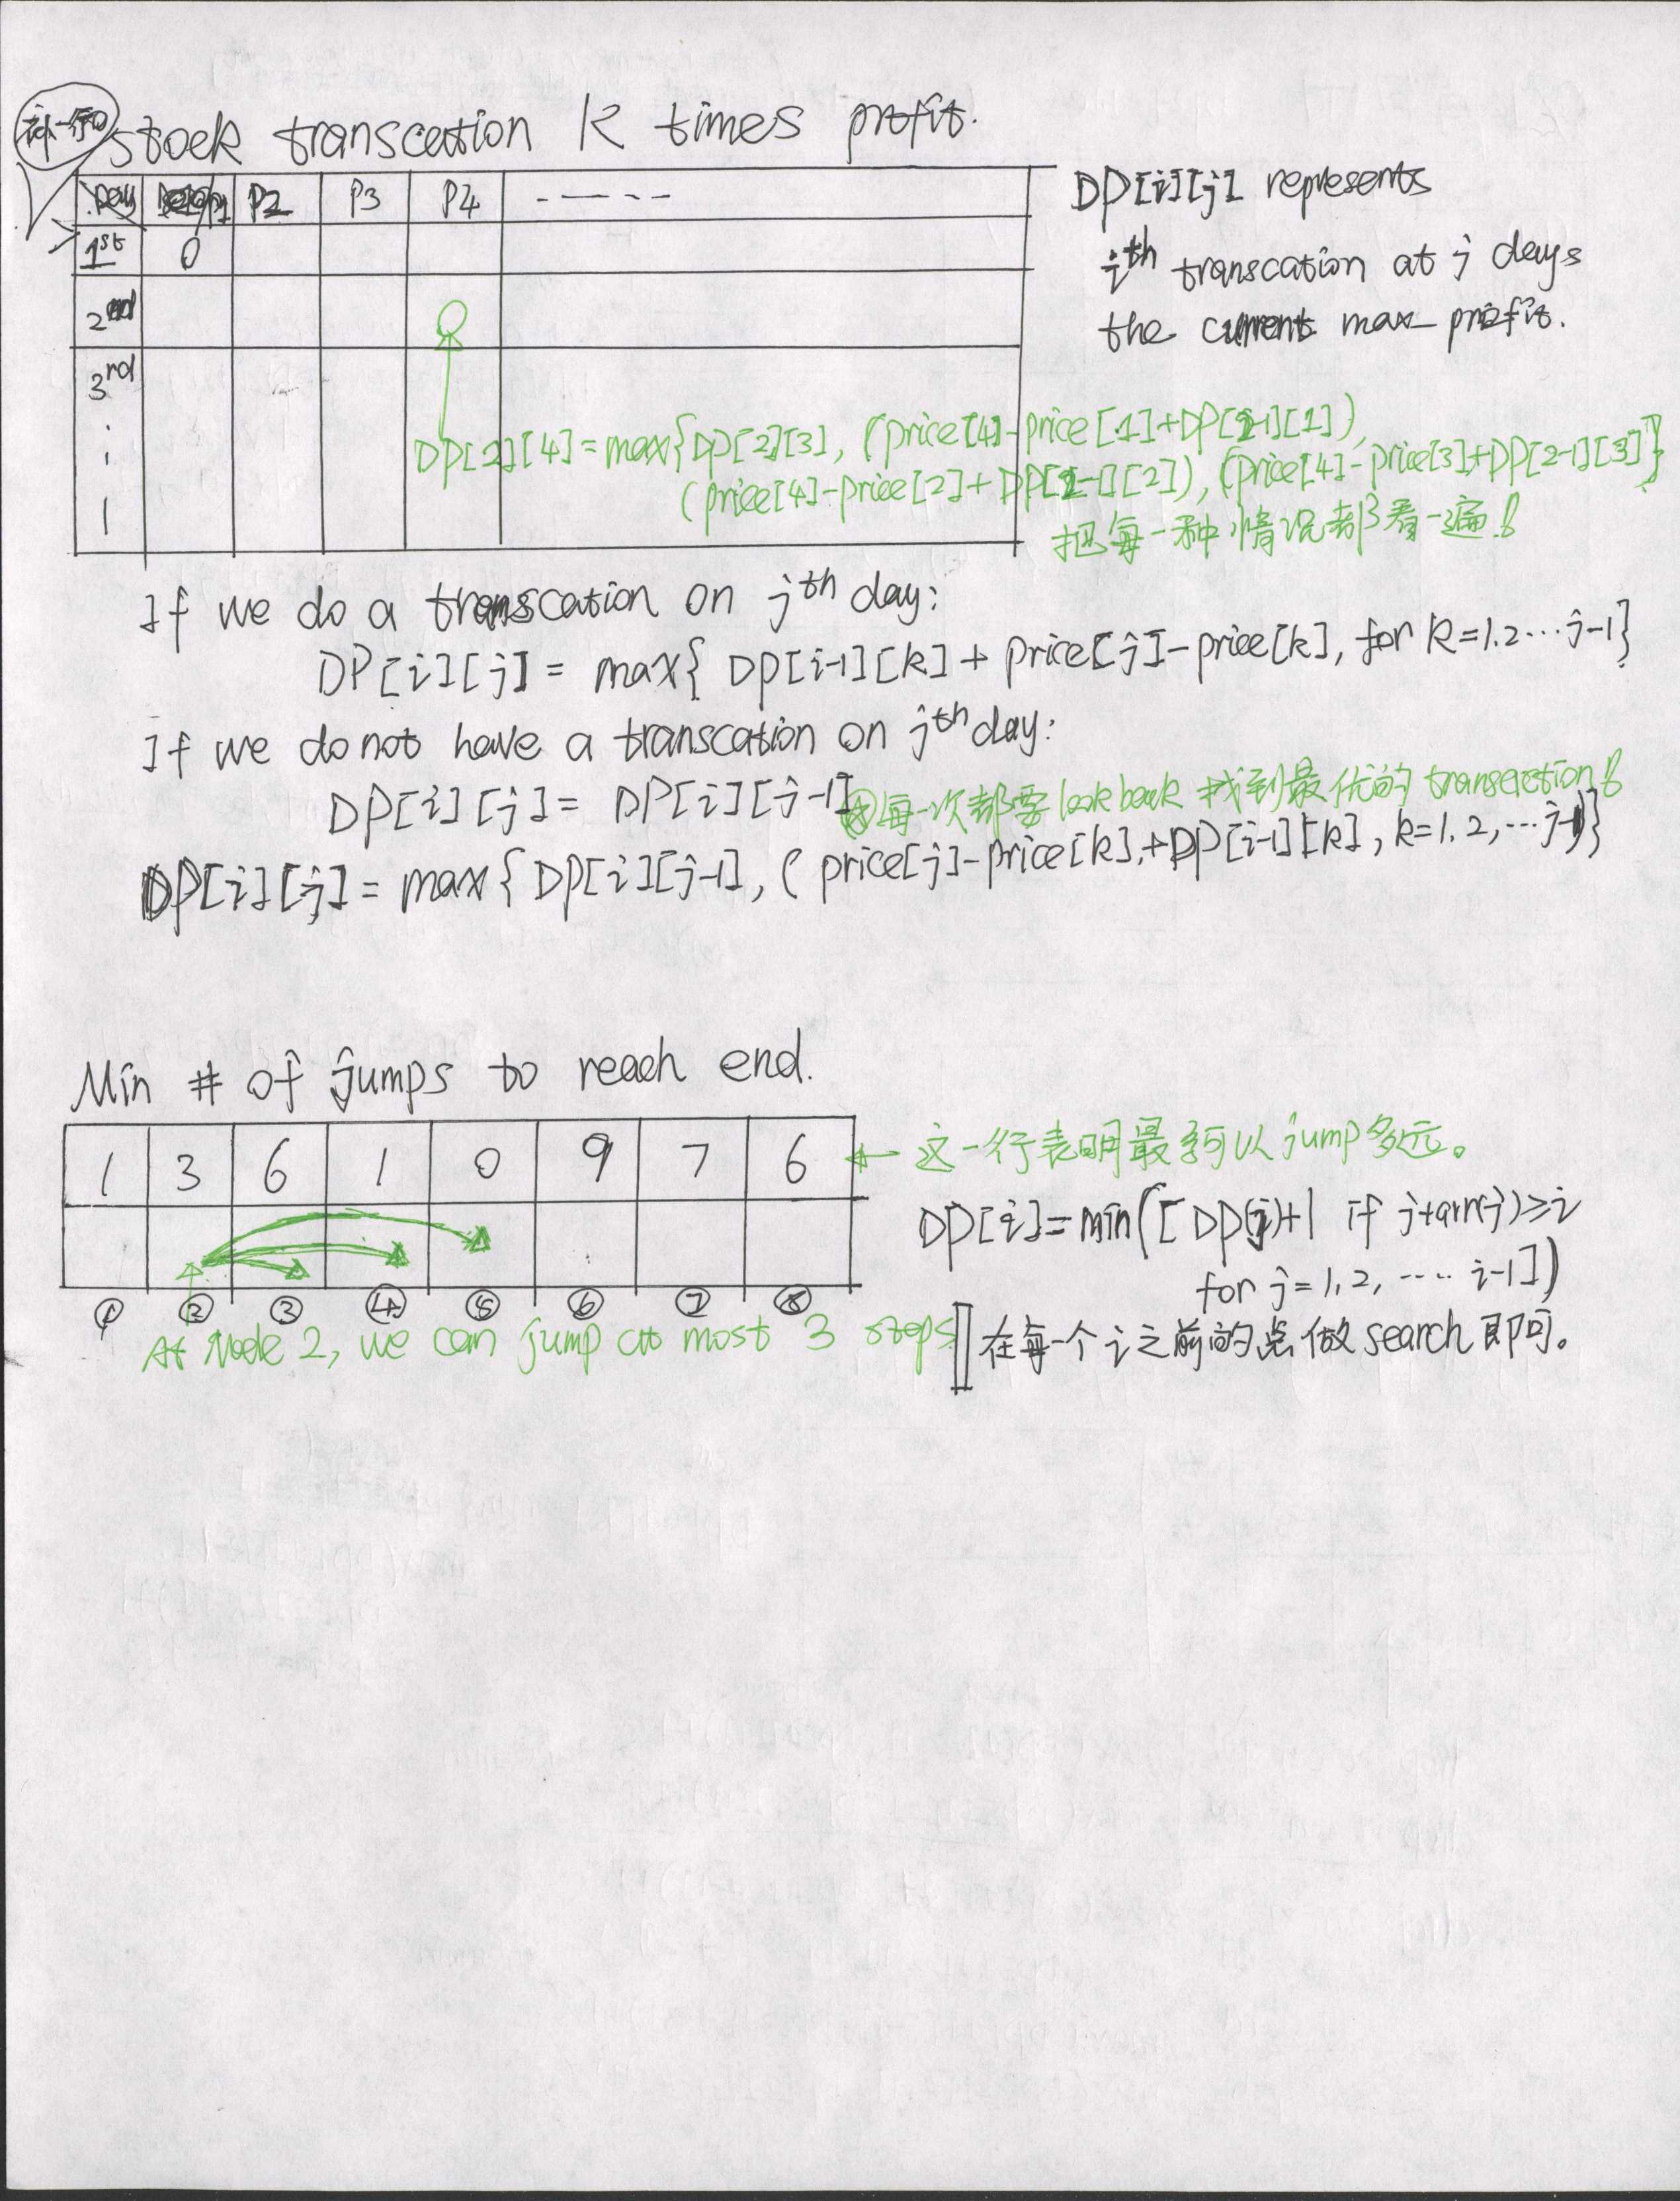 补一行0
stock transcation K times profit.
Day P2 P3 P4 -----
1st 0
2nd
3rd
DP[i][j] represents
ith transcation at j days
the current max profit.
DP[2][4]=max{DP[2][3], (price[4]-price[1]+DP[2-1][1]),
(price[4]-price[2]+DP[2-1][2]), (price[4]-price[3]+DP[2-1][3])}
把每一种情况都看一遍!
If we do a transcation on jth day:
DP[i][j] = max{ DP[i-1][k] + price[j]-price[k], for k=1.2...j-1}
If we do not have a transcation on jth day:
DP[i][j] = DP[i][j-1]
每一次都要look back 找到最优的 transcation!
DP[i][j] = max{ DP[i][j-1], ( price[j]-price[k]+DP[i-1][k], k=1.2,...j-1)}
Min # of jumps to reach end.
1 3 6 1 0 9 7 6
← 这一行表明最多可以jump多远。
① ② ③ ④ ⑤ ⑥ ⑦ ⑧
At Node 2, we can jump at most 3 steps
DP[i]=min([DP(j)+1 if j+arr(j)≥i
for j=1,2,.... i-1])
在每一个i之前的点做search即可。